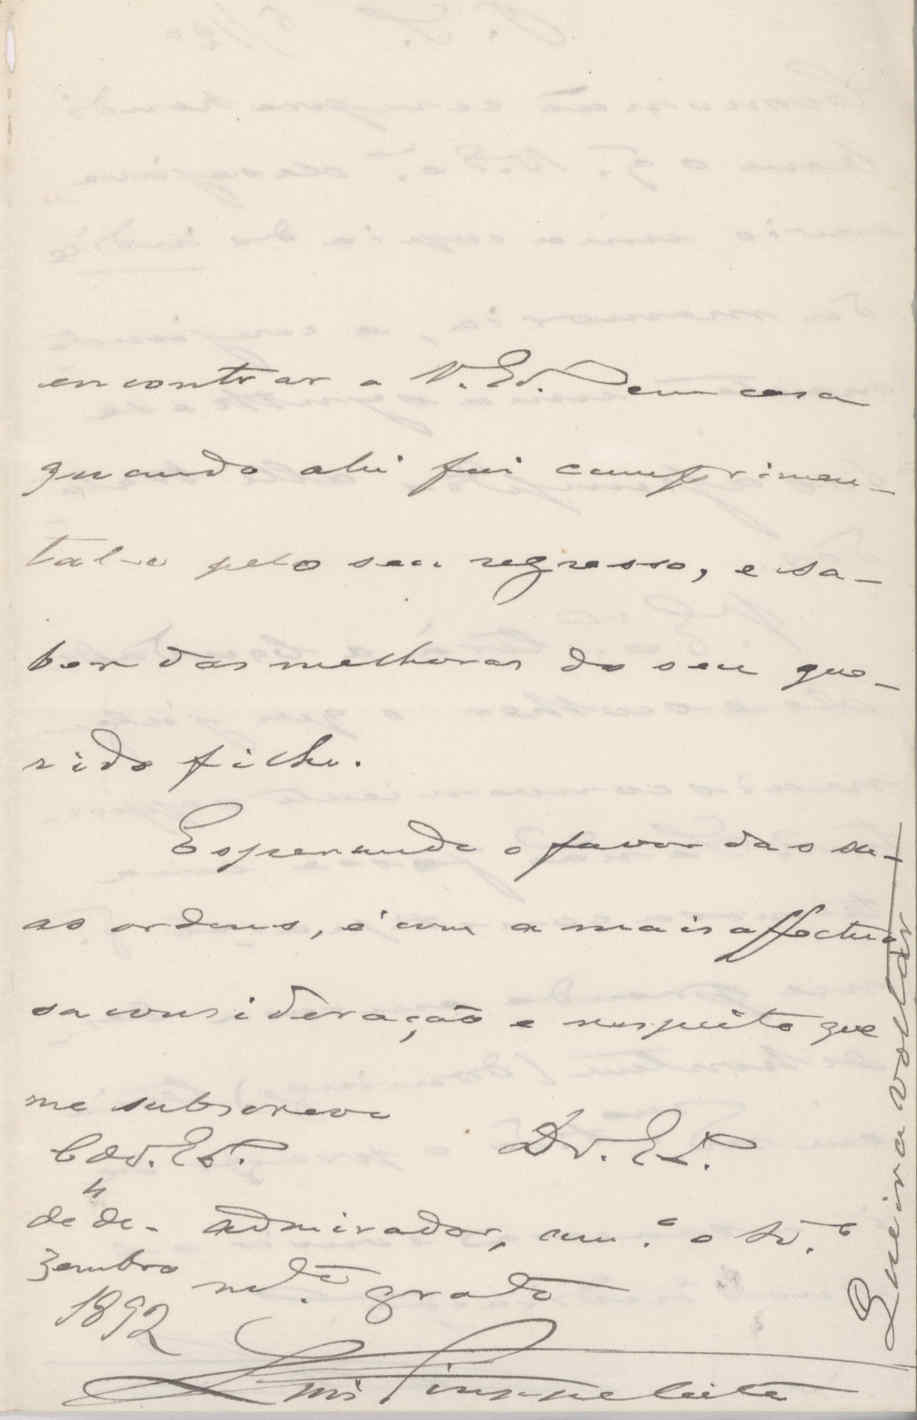 encontrar a V. Ex.ª em casa
quando ahi fui cumprimen-
tal-o pelo seu regresso, e sa-
ber das melhoras do seu que-
rido filho.
Esperando o favor das su-
as ordens, é com a mais affectuo
sa consideração e respeito que
me subscrevo
C. de V. Ex.ª
De V. Ex.ª
4
de de-
zembro
1892
admirador, am.º e
m.to grato
Luis
Queira voltar